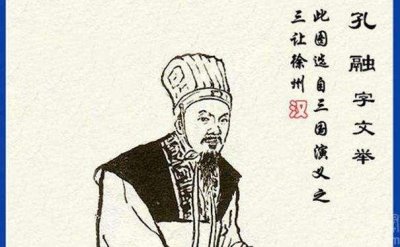 孔融字文举
此图选自三国演义之
三让徐州
汉